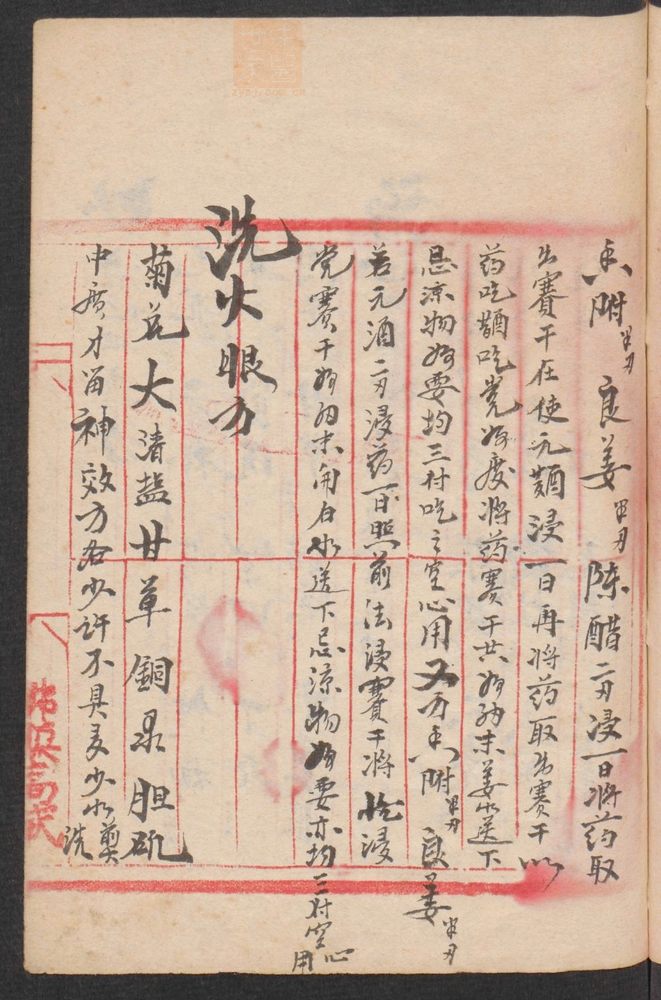 香附半刃 良姜半刃 陈醋二刃浸一日将药取
出赛干在使元酒浸一日再将药取出赛干以
药吃酒吃完为度将药赛干共为细末姜水送下
忌凉物为要均三付吃之空心用又方香附半刃良姜半刃
若元酒二刃浸药一日照前法浸赛干将 浸
完赛干为细末用白水送下忌凉物为要亦均三付空心用
洗火眼方
菊花大清盐甘草铜录胆矾
中 神效方各少许不具多少水煎洗